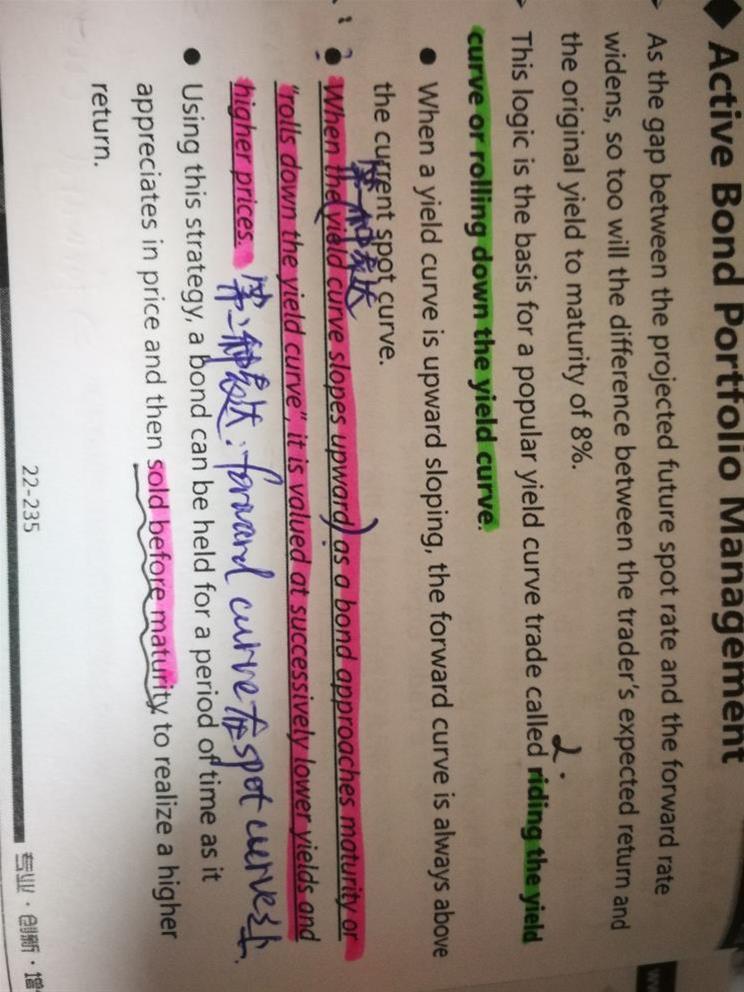 ◆ Active Bond Portfolio Management
As the gap between the projected future spot rate and the forward rate
widens, so too will the difference between the trader's expected return and
the original yield to maturity of 8%.
2.
This logic is the basis for a popular yield curve trade called riding the yield
curve or rolling down the yield curve.
● When a yield curve is upward sloping, the forward curve is always above
the current spot curve.
第一种表达
● When the (yield curve slopes upward) as a bond approaches maturity or
"rolls down the yield curve", it is valued at successively lower yields and
higher prices.
第二种表达: forward curve在spot curve上.
● Using this strategy, a bond can be held for a period of time as it
appreciates in price and then sold before maturity to realize a higher
return.
22-235
专业·创新·增